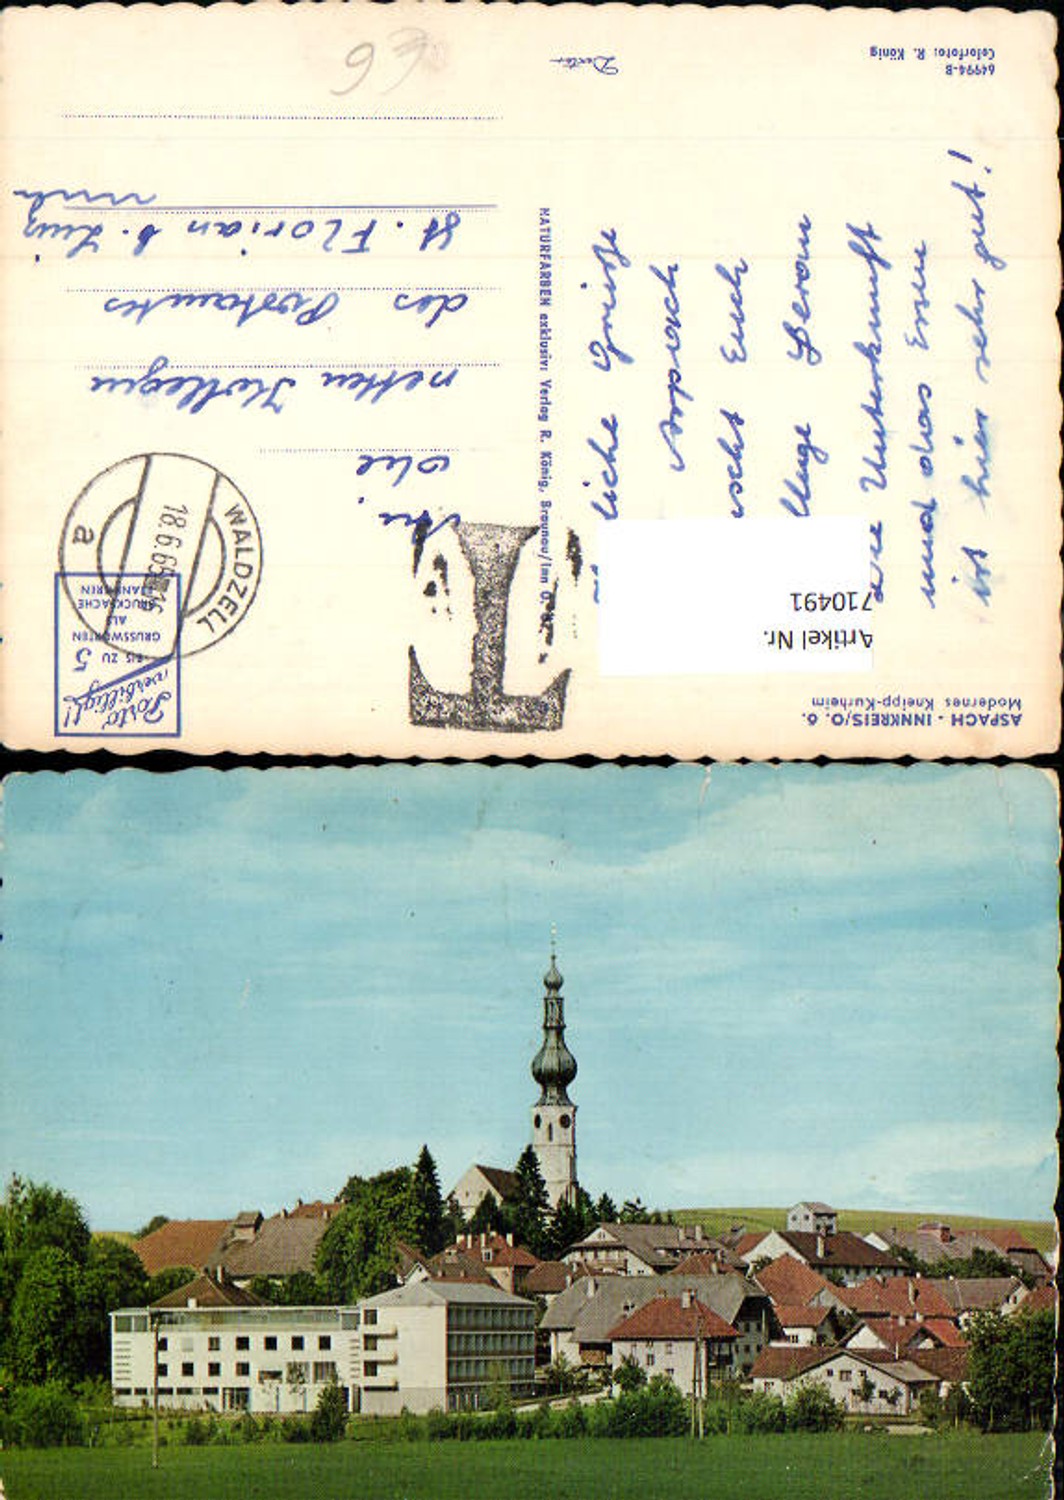 ASPACH - INNKREIS/O. Ö.
Modernes Kneipp-Kurheim
Artikel Nr.
710491
liche Grüße
Aspach
Euch
Unterkunft
und das Essen
ist hier sehr gut!
64994-B
Colorfoto: R. König
NATURFARBEN exklusiv: Verlag R. König, Braunau/Inn O. Ö.
T
Porto
verbilligt!
BIS ZU 5
GRUSSWORTEN
ALS
DRUCKSACHE
FRANKIEREN
WALDZELL
18.6.65-16
a
An
die
netten Kollegen
des Postamtes
St. Florian b. Linz
€6